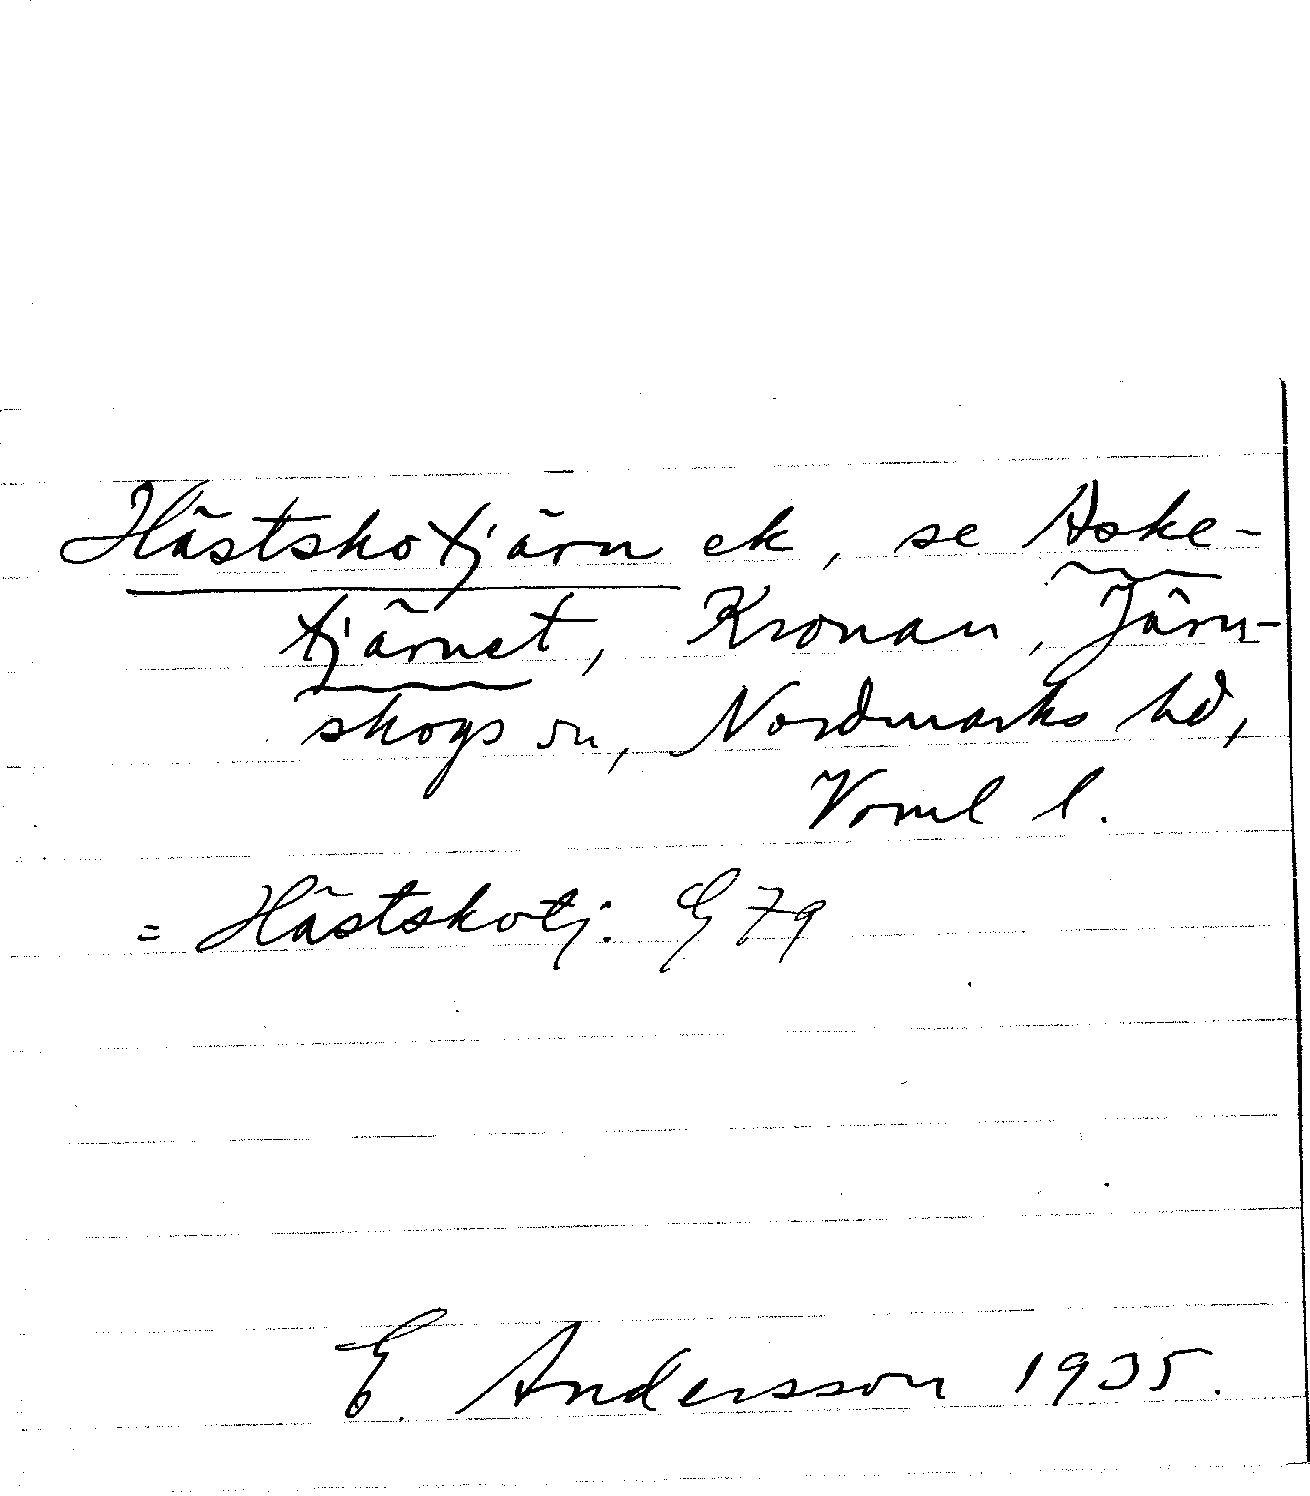 Hästskotjärn ek, se Aske-
tjärnet, Kronan, Järn-
skogs sn, Nordmarks hd,
Vrml l.
= Hästskotj. G 79
E. Andersson 1935.